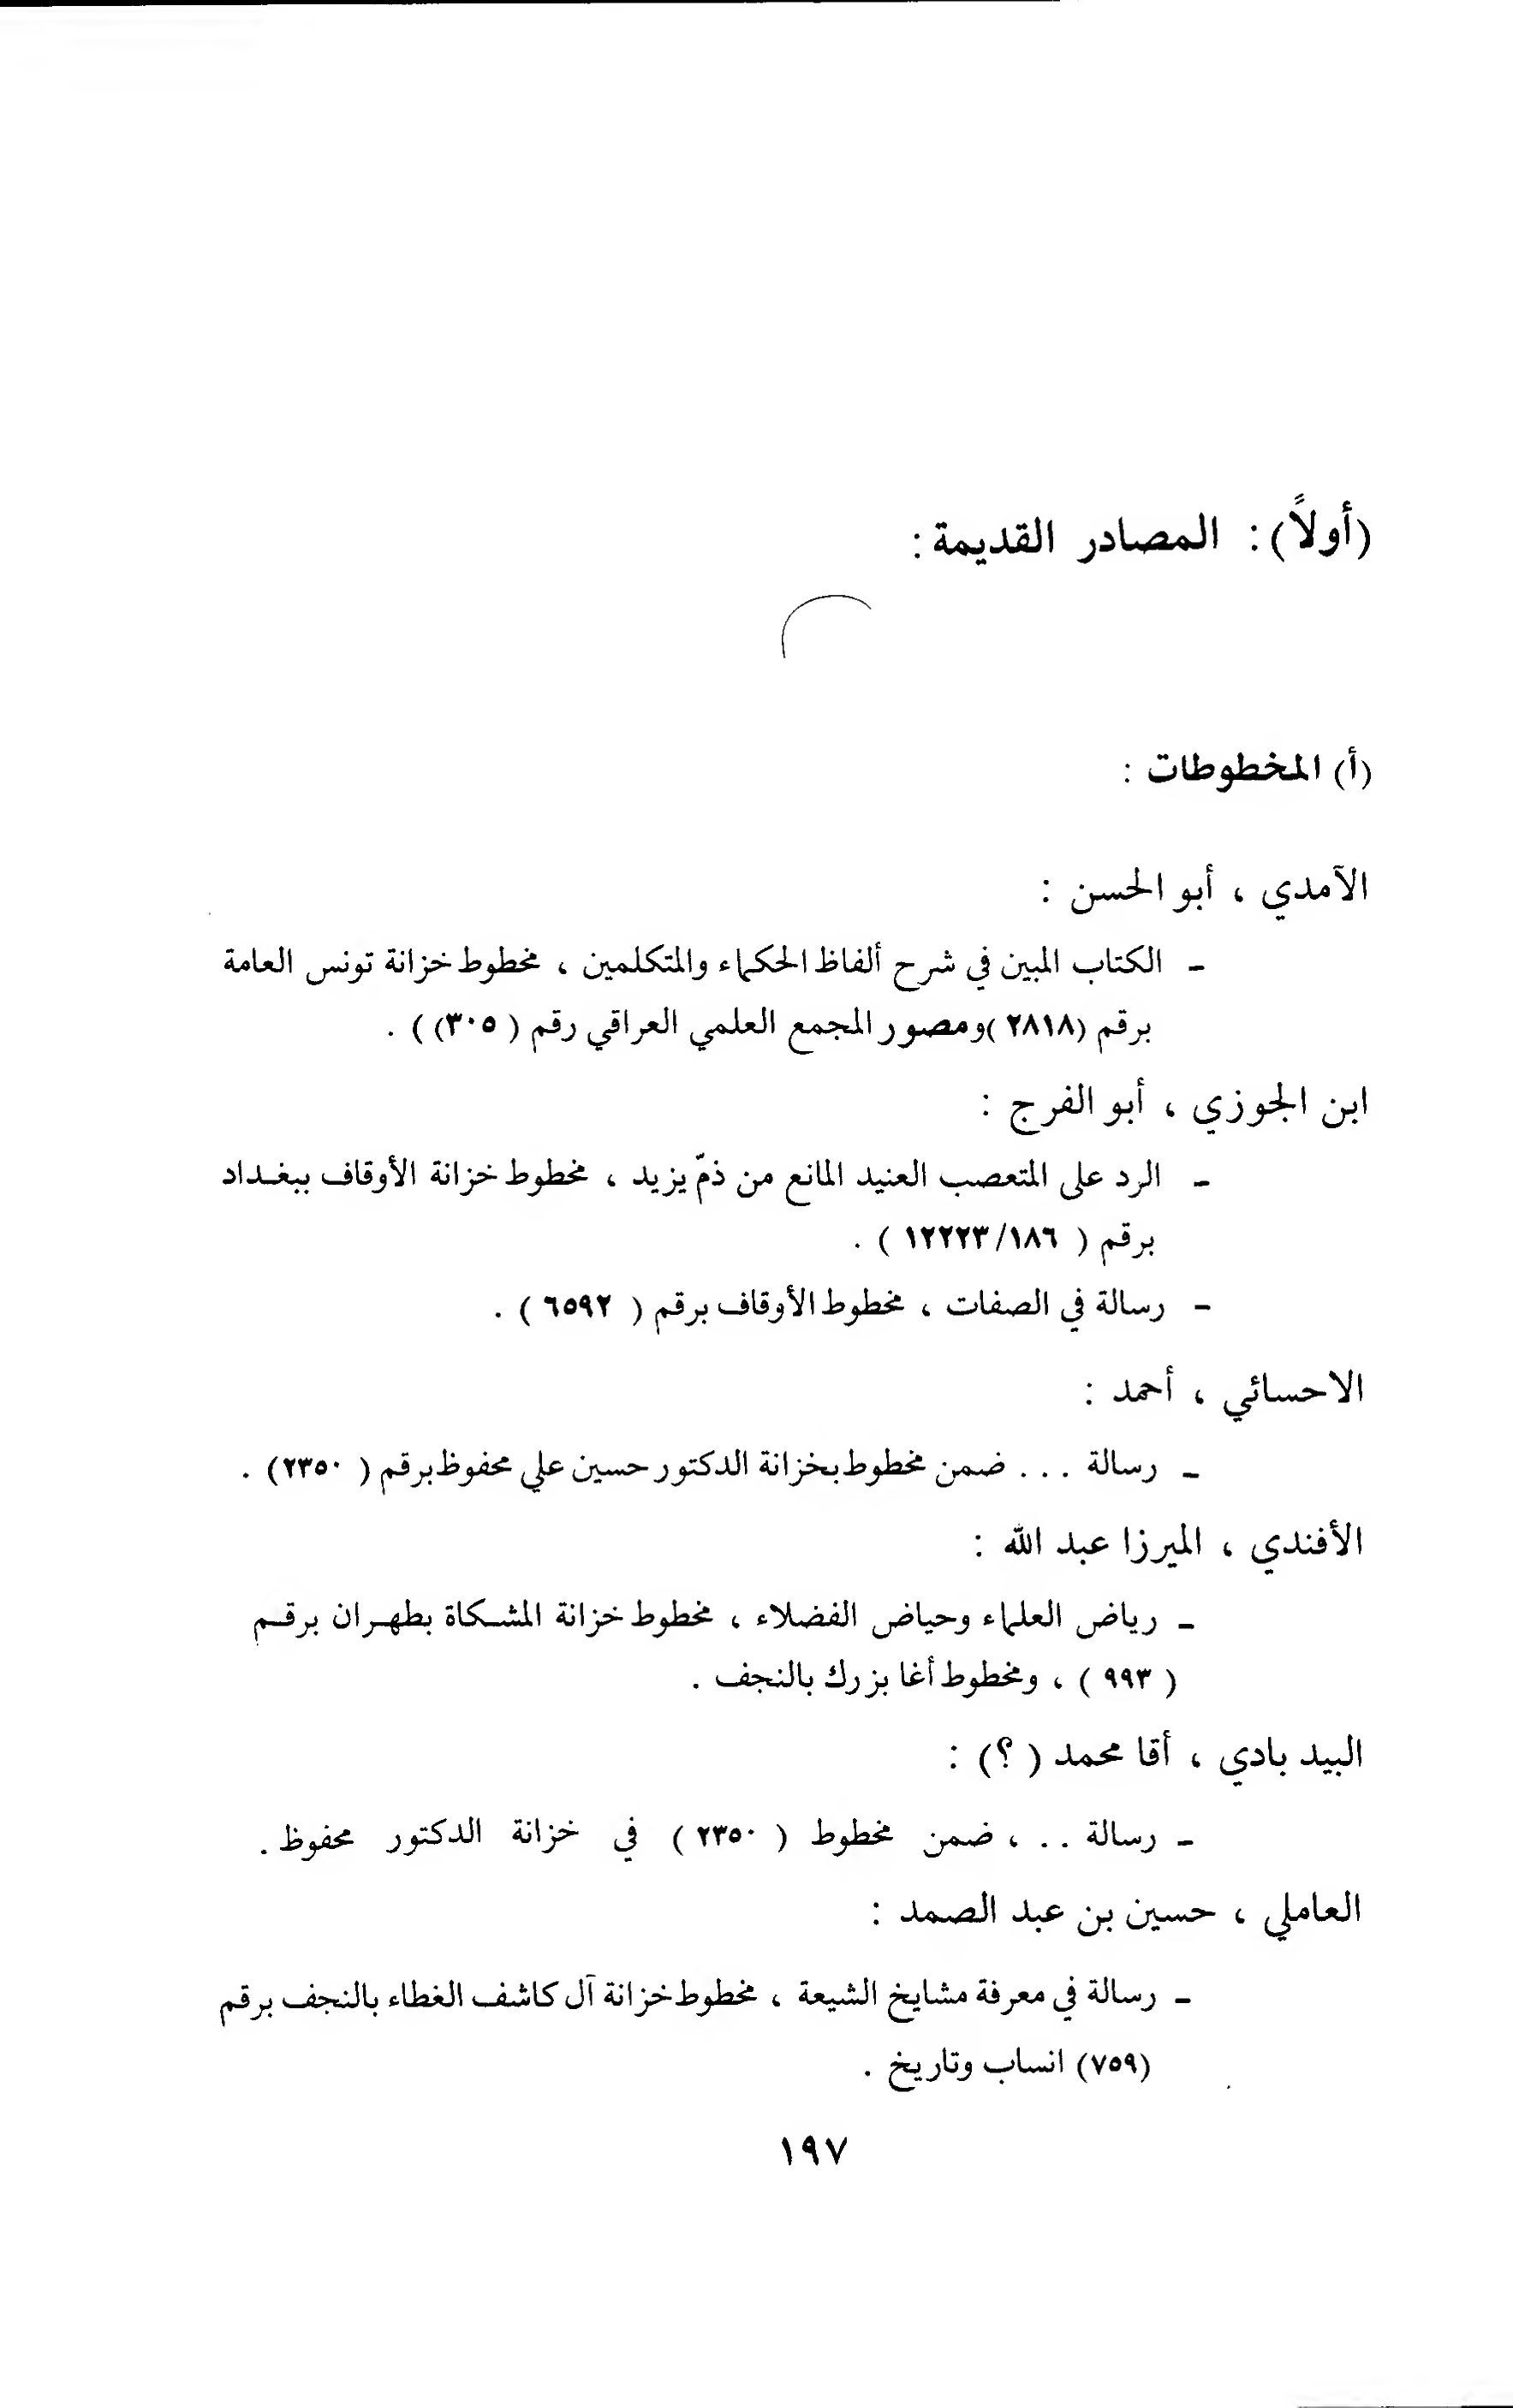 (أولاً): المصادر القديمة:
(أ) المخطوطات :
الآمدي ، أبو الحسن :
- الكتاب المبين في شرح ألفاظ الحكماء والمتكلمين ، مخطوط خزانة تونس العامة
برقم (٢٨١٨ )ومصور المجمع العلمي العراقي رقم ( ٣٠٥) ) .
ابن الجوزي ، أبو الفرج :
- الرد على المتعصب العنيد المانع من ذمّ يزيد ، مخطوط خزانة الأوقاف ببغداد
برقم ( ١٢٢٢٣/١٨٦ ) .
- رسالة في الصفات ، مخطوط الأوقاف برقم ( ٦٥٩٢ ) .
الاحسائي ، أحمد :
- رسالة . . . ضمن مخطوط بخزانة الدكتور حسين علي محفوظ برقم ( ٢٣٥٠) .
الأفندي ، الميرزا عبد الله :
- رياض العلماء وحياض الفضلاء ، مخطوط خزانة المشكاة بطهران برقم
( ٩٩٣ ) ، ومخطوط أغا بزرك بالنجف .
البيد بادي ، أقا محمد ( ؟) :
- رسالة . . ، ضمن مخطوط ( ٢٣٥٠ ) في خزانة الدكتور محفوظ .
العاملي ، حسين بن عبد الصمد :
- رسالة في معرفة مشايخ الشيعة ، مخطوط خزانة آل كاشف الغطاء بالنجف برقم
(٧٥٩) انساب وتاريخ .
١٩٧